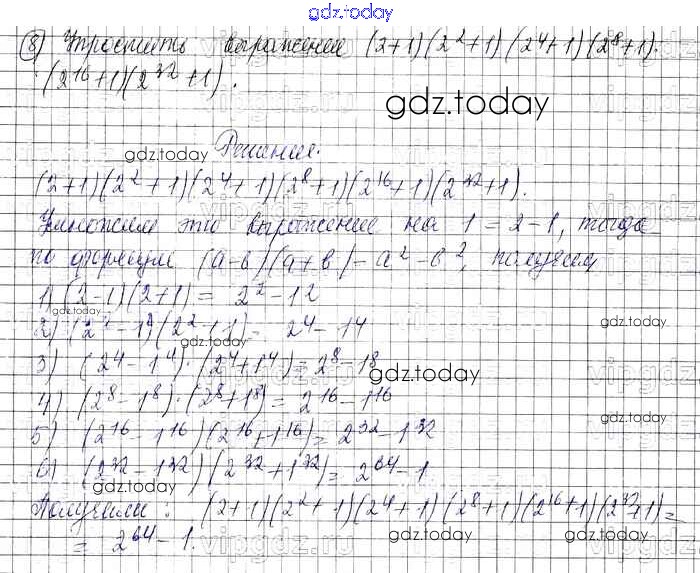 gdz.today
8) Упростить выражение (2+1)(2²+1)(2⁴+1)(2⁸+1)·
·(2¹⁶+1)(2³²+1).
gdz.today
gdz.today
Решение.
(2+1)(2²+1)(2⁴+1)(2⁸+1)(2¹⁶+1)(2³²+1).
Умножим это выражение на 1=2-1, тогда
по формуле (а-в)(а+в)=а²-в², получим
1) (2-1)(2+1) = 2²-1²
gdz.today
2) (2²-1²)(2²+1) = 2⁴-1⁴
gdz.today
3) (2⁴-1⁴)·(2⁴+1⁴)=2⁸-1⁸
gdz.today
4) (2⁸-1⁸)·(2⁸+1⁸)=2¹⁶-1¹⁶
5) (2¹⁶-1¹⁶)(2¹⁶+1¹⁶)=2³²-1³²
6) (2³²-1³²)(2³²+1³²)=2⁶⁴-1
gdz.today
Получили: (2+1)(2²+1)(2⁴+1)(2⁸+1)(2¹⁶+1)(2³²+1)=
= 2⁶⁴-1.
gdz.today
gdz.today
vipgdz.ru